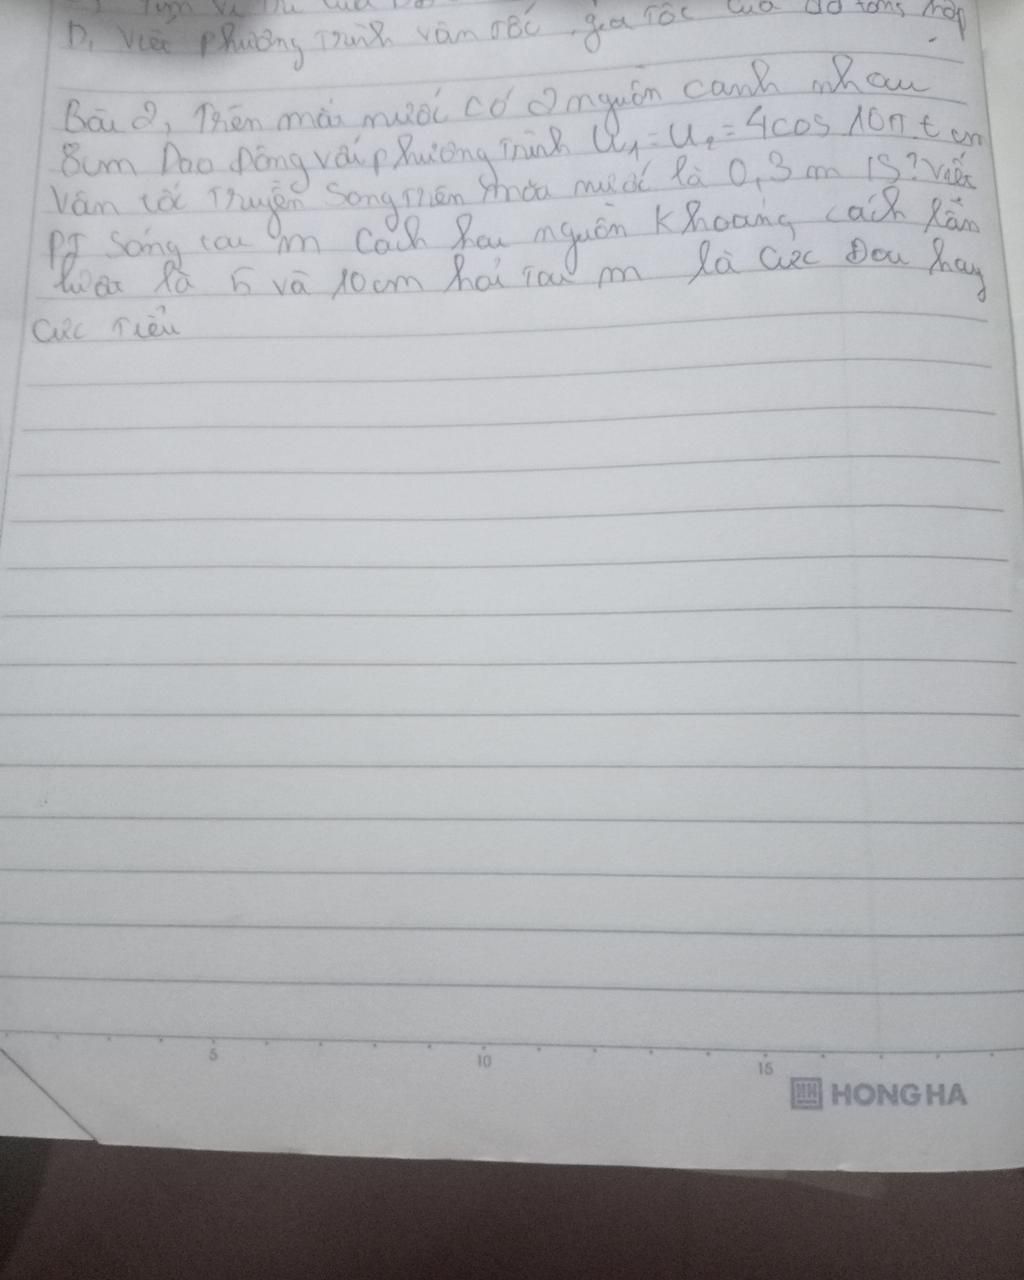 D, Viết phương trình vận tốc, gia tốc của dđ tổng hợp
Bài 2, Trên mặt nước có 2 nguồn cạnh nhau
8cm Dao động với phương trình U₁ = U₂ = 4cos 10πt cm
Vận tốc Truyền sóng trên mặt nước là 0,3 m/s? Viết
PT sóng tại m cách hai nguồn khoảng cách lần
lượt là 5 và 10cm hỏi tại m là cực Đại hay
cực tiểu
5 10 15
HONG HA